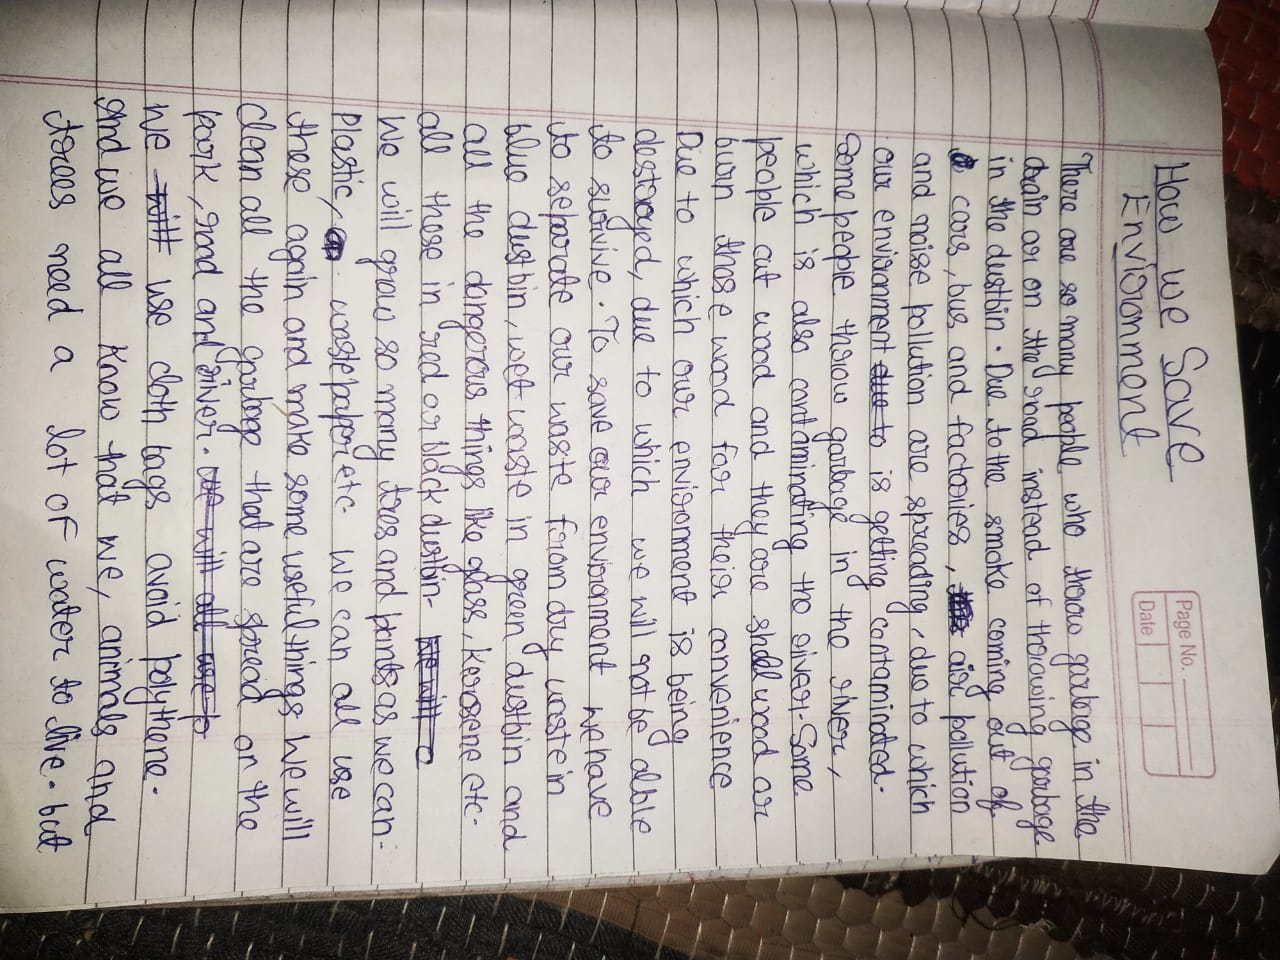 Page No.
Date
How we Save
Environment
There are so many people who throw garbage in the
drain or on the road instead of throwing garbage
in the dustbin. Due to the smoke coming out of
cars, bus and factories, air pollution
and noise pollution are spreading, due to which
our environment is getting contaminated.
Some people throw garbage in the river,
which is also contaminating the river. Some
people cut wood and they are shell wood or
burn those wood for their convenience
Due to which our environment is being
destroyed, due to which we will not be able
to survive. To save our environment we have
to separate our waste from dry waste in
blue dustbin, wet waste in green dustbin and
all the dangerous things like glass, kerosene etc.
all these in red or black dustbin. We will
We will grow so many trees and plants as we can.
Plastic, waste paper etc. we can all use
these again and make some useful things we will
clean all the garbage that are spread on the
park, road and river. We will all use to
We will use cloth bags avoid polythene.
And we all know that we, animals and
trees need a lot of water to live. but